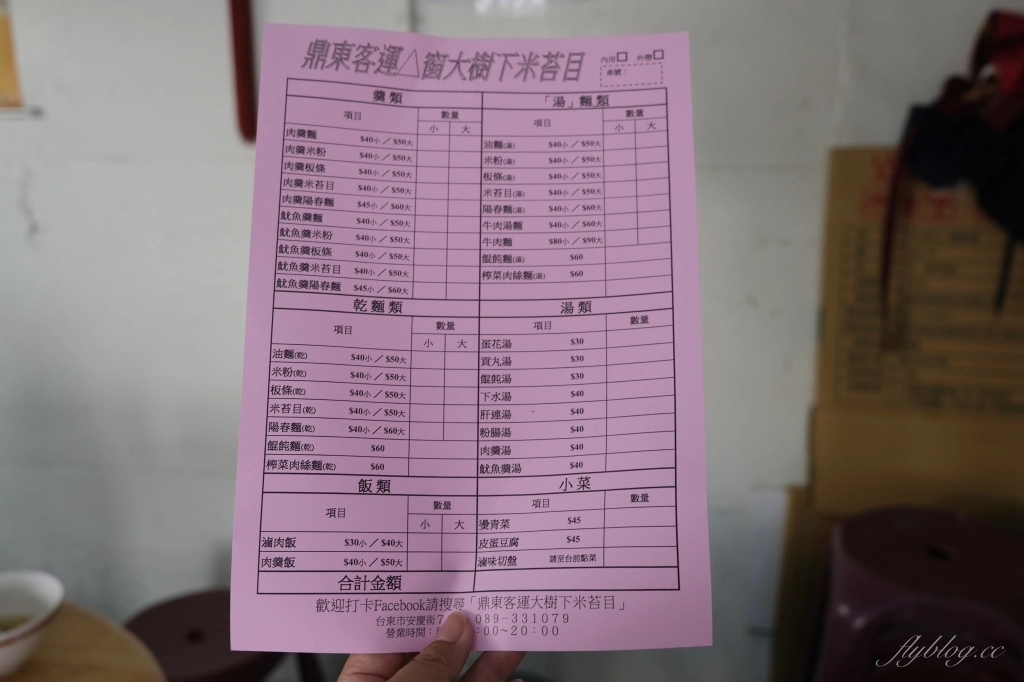 鼎東客運△窗大樹下米苔目
內用□ 外帶□
桌號：
羹類
項目 數量
小 大
肉羹麵 $40小／$50大
肉羹米粉 $40小／$50大
肉羹板條 $40小／$50大
肉羹米苔目 $40小／$50大
肉羹陽春麵 $45小／$60大
魷魚羹麵 $40小／$50大
魷魚羹米粉 $40小／$50大
魷魚羹板條 $40小／$50大
魷魚羹米苔目 $40小／$50大
魷魚羹陽春麵 $45小／$60大
「湯」麵類
項目 數量
小 大
油麵(湯) $40小／$50大
米粉(湯) $40小／$50大
板條(湯) $40小／$50大
米苔目(湯) $40小／$50大
陽春麵(湯) $40小／$60大
牛肉湯麵 $40小／$60大
牛肉麵 $80小／$90大
餛飩麵(湯) $60
榨菜肉絲麵(湯) $60
乾麵類
項目 數量
小 大
油麵(乾) $40小／$50大
米粉(乾) $40小／$50大
板條(乾) $40小／$50大
米苔目(乾) $40小／$50大
陽春麵(乾) $40小／$60大
餛飩麵(乾) $60
榨菜肉絲麵(乾) $60
湯類
項目 數量
蛋花湯 $30
貢丸湯 $30
餛飩湯 $30
下水湯 $40
肝連湯 $40
粉腸湯 $40
肉羹湯 $40
魷魚羹湯 $40
飯類
項目 數量
小 大
滷肉飯 $30小／$40大
肉羹飯 $40小／$50大
小菜
項目 數量
燙青菜 $45
皮蛋豆腐 $45
滷味切盤 請至台前點菜
合計金額
歡迎打卡Facebook請搜尋「鼎東客運大樹下米苔目」
台東市安慶街7 089-331079
營業時間： :00~20:00
flyblog.cc